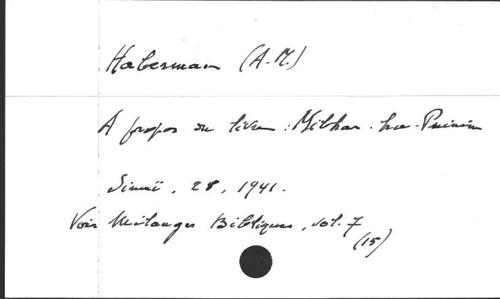 Haberman (A.M.)
A propos du livre : Mibhar ha-Peninim
Sinaï, 28, 1941.
Voir Mélanges Bibliques, vol. 7
(15)